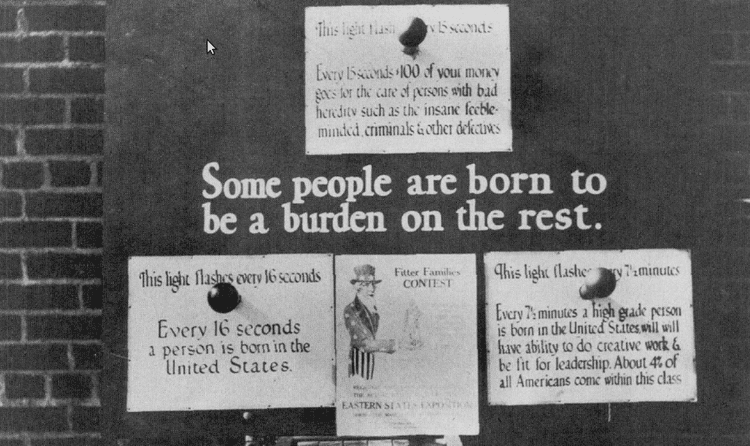 This light flash 15 seconds
Every 15 seconds $100 of your money
goes for the care of persons with bad
heredity such as the insane feeble-
minded, criminals & other defectives
Some people are born to
be a burden on the rest.
This light flashes every 16 seconds
Every 16 seconds
a person is born in the
United States.
Fitter Families
CONTEST
EASTERN STATES EXPOSITION
This light flashes 7½ minutes
Every 7½ minutes a high grade person
is born in the United States, will will
have ability to do creative work &
be fit for leadership. About 4% of
all Americans come within this class